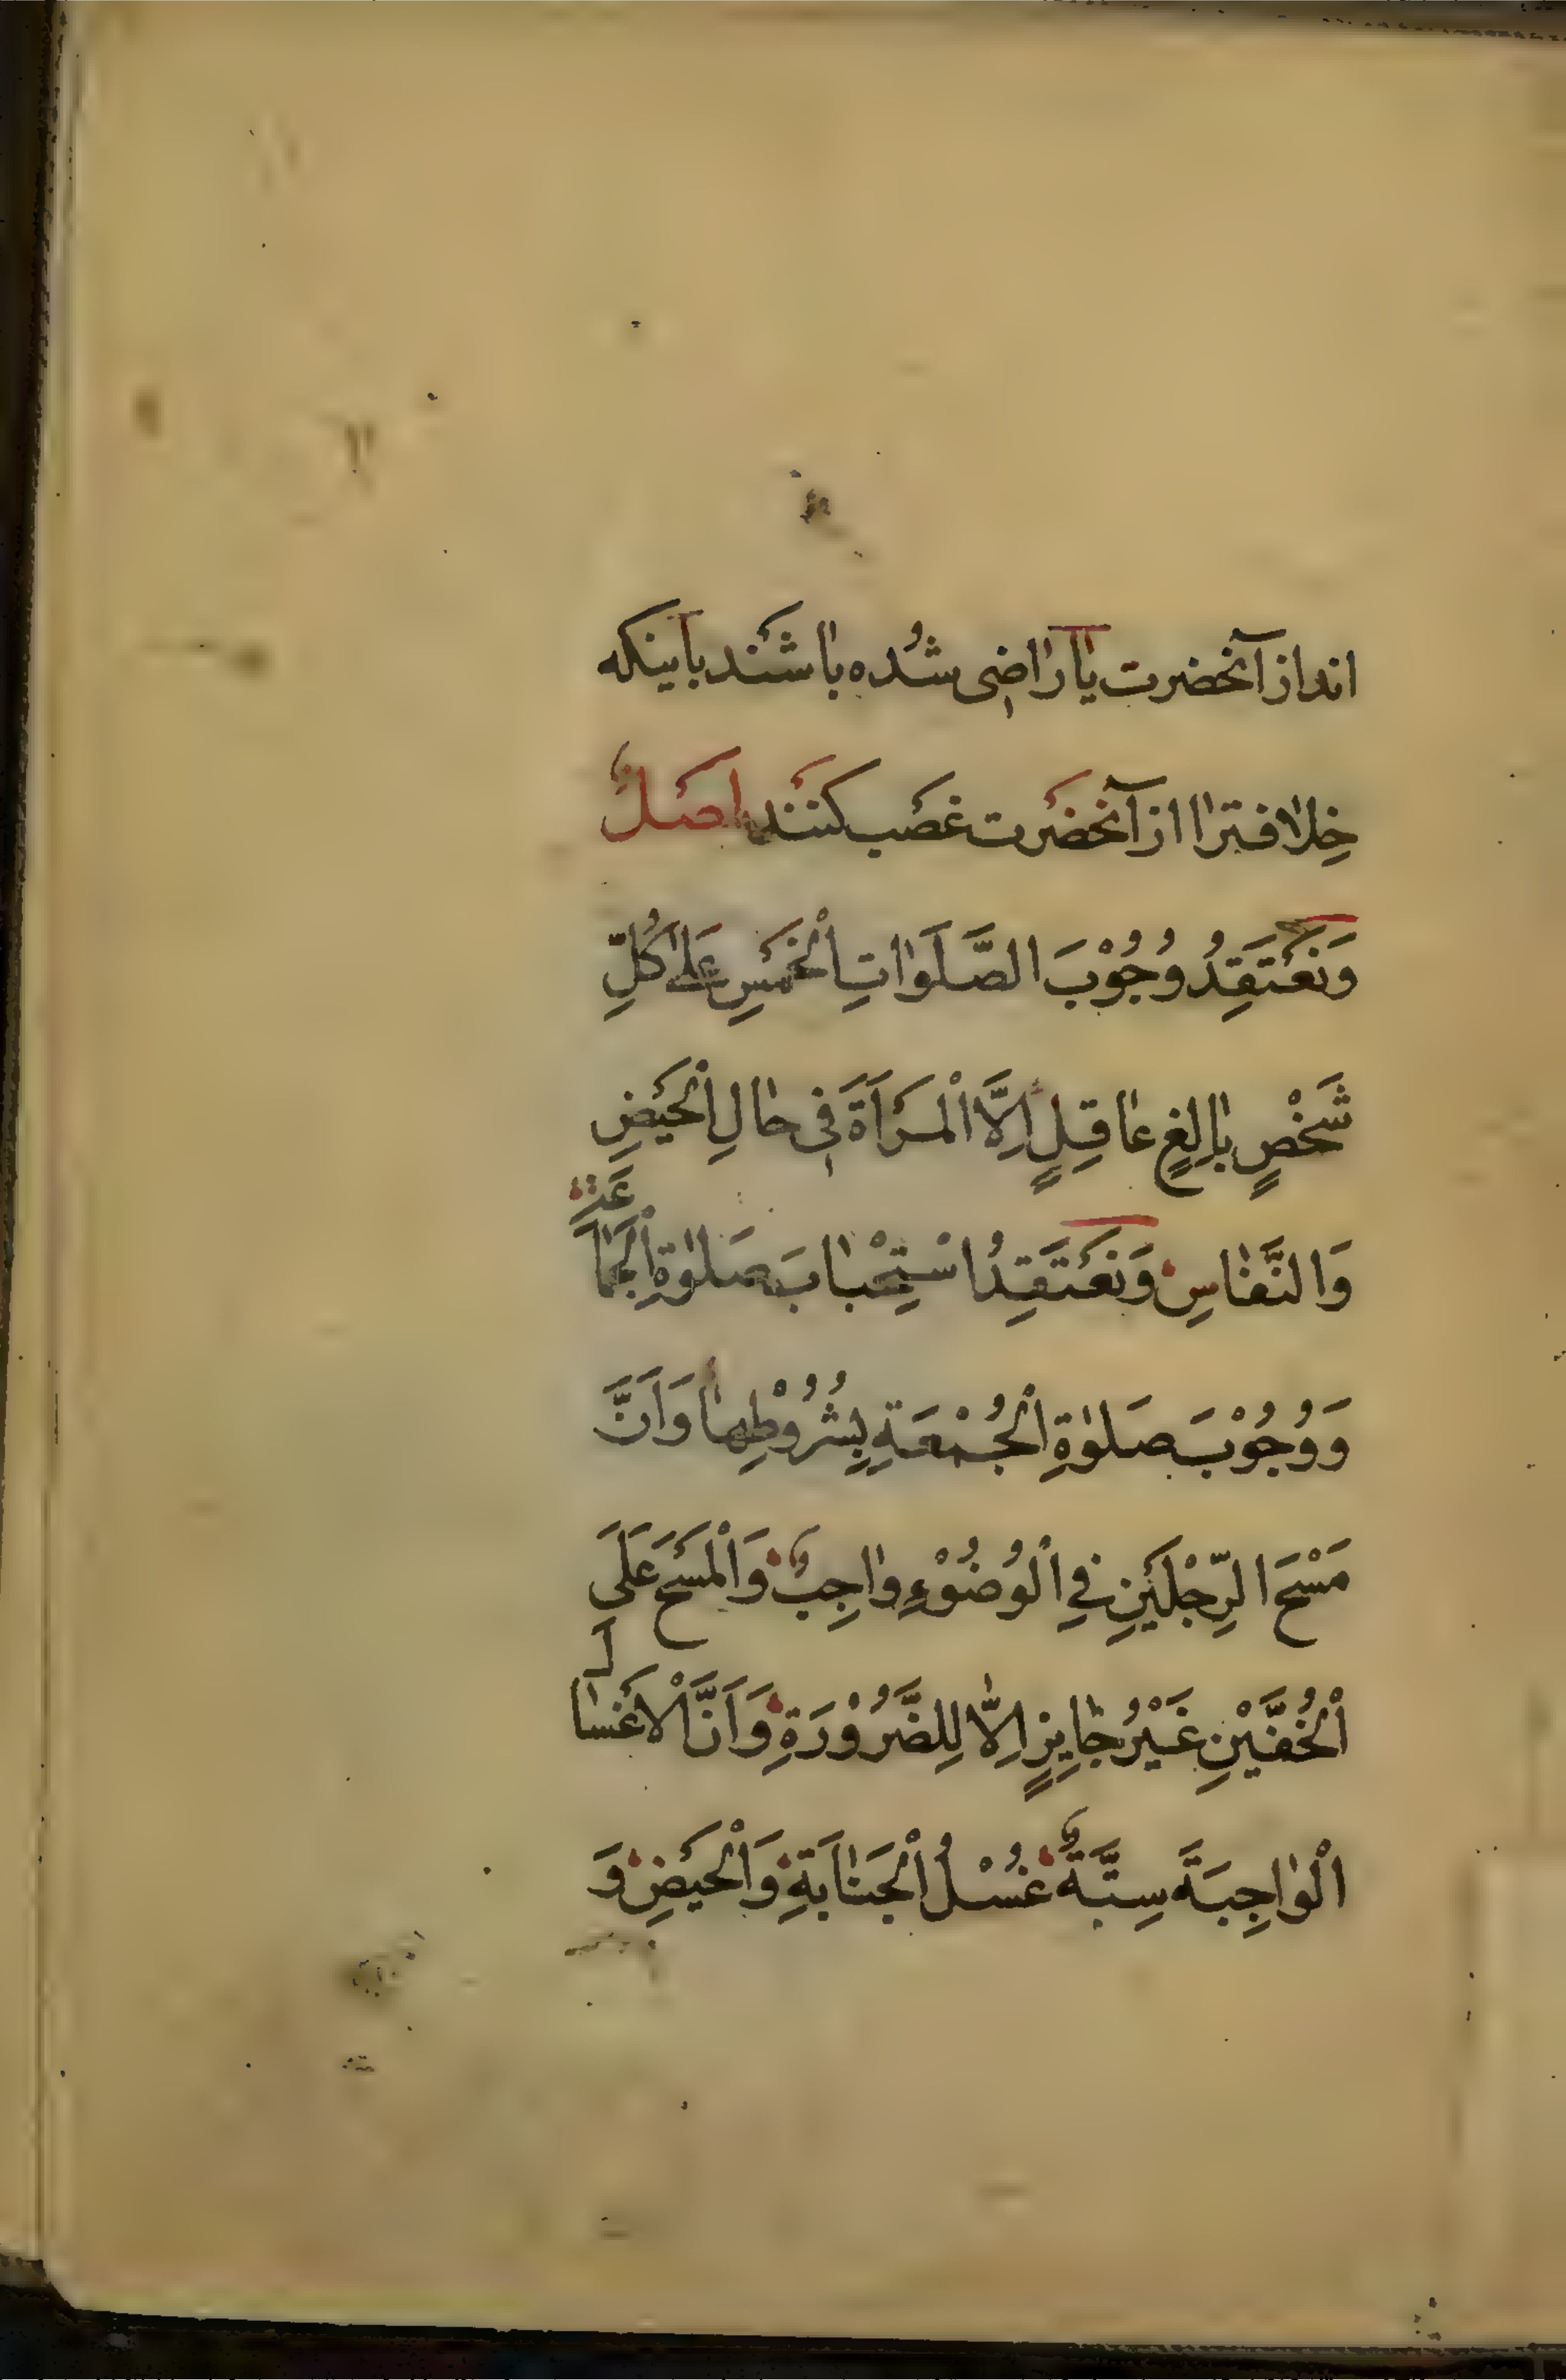 اند از آنحضرت یا راضی شُده باشند باینکه
خِلافترا از آنحضَرت غصَب کنَند اصَلٌ
وَنَعْتَقِدُ وُجُوْبَ الصَّلَوٰاتِ الْخَمْسِ عَلیٰ كُلِّ
شَخْصٍ بٰالِغٍ عٰاقِلٍ اِلَّا الْمَرْاَةَ فِی حٰالِ الْحَيْضِ
وَالنَّفٰاسِ وَنَعْتَقِدُ اسْتِحْبٰابَ صَلٰوةِ الْجَمٰاعَةِ
وَوُجُوْبَ صَلٰوةِ الْجُمْعَةِ بِشُرُوْطِهٰا وَاَنَّ
مَسْحَ الرِّجْلَيْنِ فِي الْوُضُوْءِ وٰاجِبٌ وَالْمَسْحَ عَلَی
الْخُفَّيْنِ غَيْرُ جٰايِزٍ اِلّٰا لِلضَّرُوْرَةِ وَاَنَّ الْاَغْسٰالَ
الْوٰاجِبَةَ سِتَّةٌ غُسْلُ الْجَنٰابَةِ وَالْحَيْضِ وَ